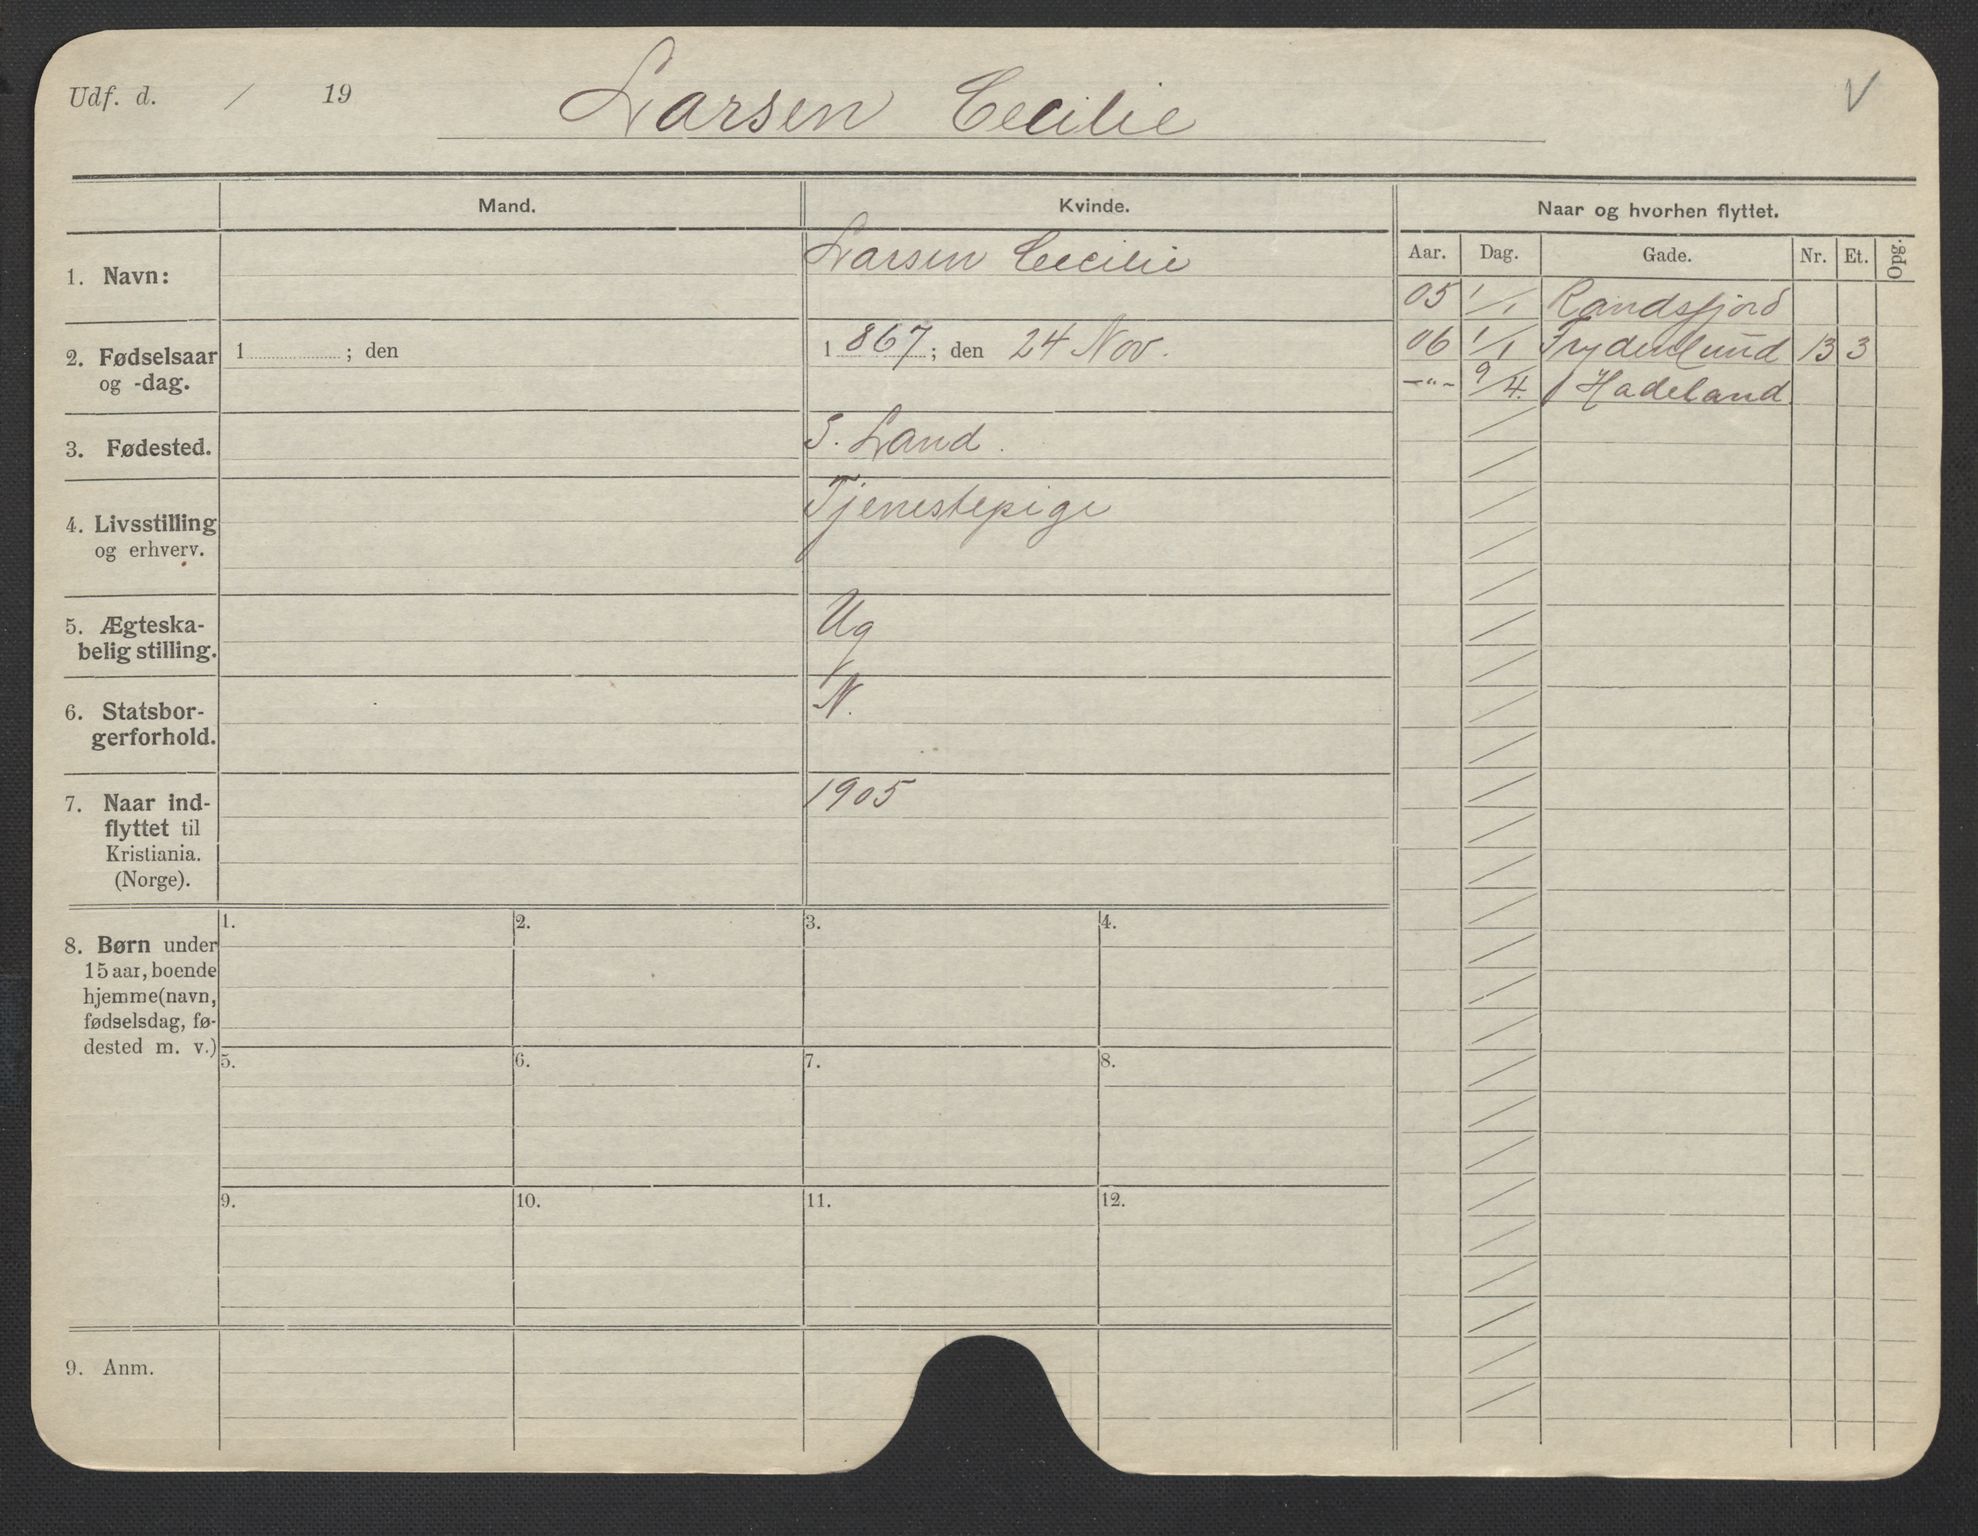 Udf. d. / 19 Larsen Cecilie V
Mand. Kvinde. Naar og hvorhen flyttet.
Aar. Dag. Gade. Nr. Et. Opg.
1. Navn: Larsen Cecilie
05 1/1 Randsfjord
2. Fødselsaar og -dag. 1 ; den 1867; den 24 Nov.
06 1/1 Frydenlund 13 3
—"— 9/4. Hadeland
3. Fødested. S. Land.
4. Livsstilling og erhverv. Tjenestepige
5. Ægteska-
belig stilling. Ug
6. Statsbor-
gerforhold. N.
7. Naar ind-
flyttet til
Kristiania.
(Norge). 1905
8. Børn under
15 aar, boende
hjemme (navn,
fødselsdag, fø-
dested m. v.)
1. 2. 3. 4.
5. 6. 7. 8.
9. 10. 11. 12.
9. Anm.